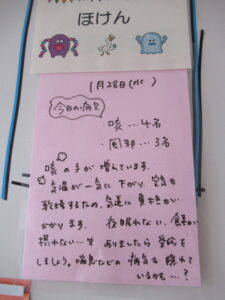 ほけん
1月28日(水)
今日の病欠
・咳…4名
・風邪…3名
咳の子が増えています。
気温が一気に下がり、空気も
乾燥するため、気道に負担が
かかります。夜眠れない、食事が
摂れない…等ありましたら受診を
しましょう。喘息などの病気も隠れて
いるかも…?